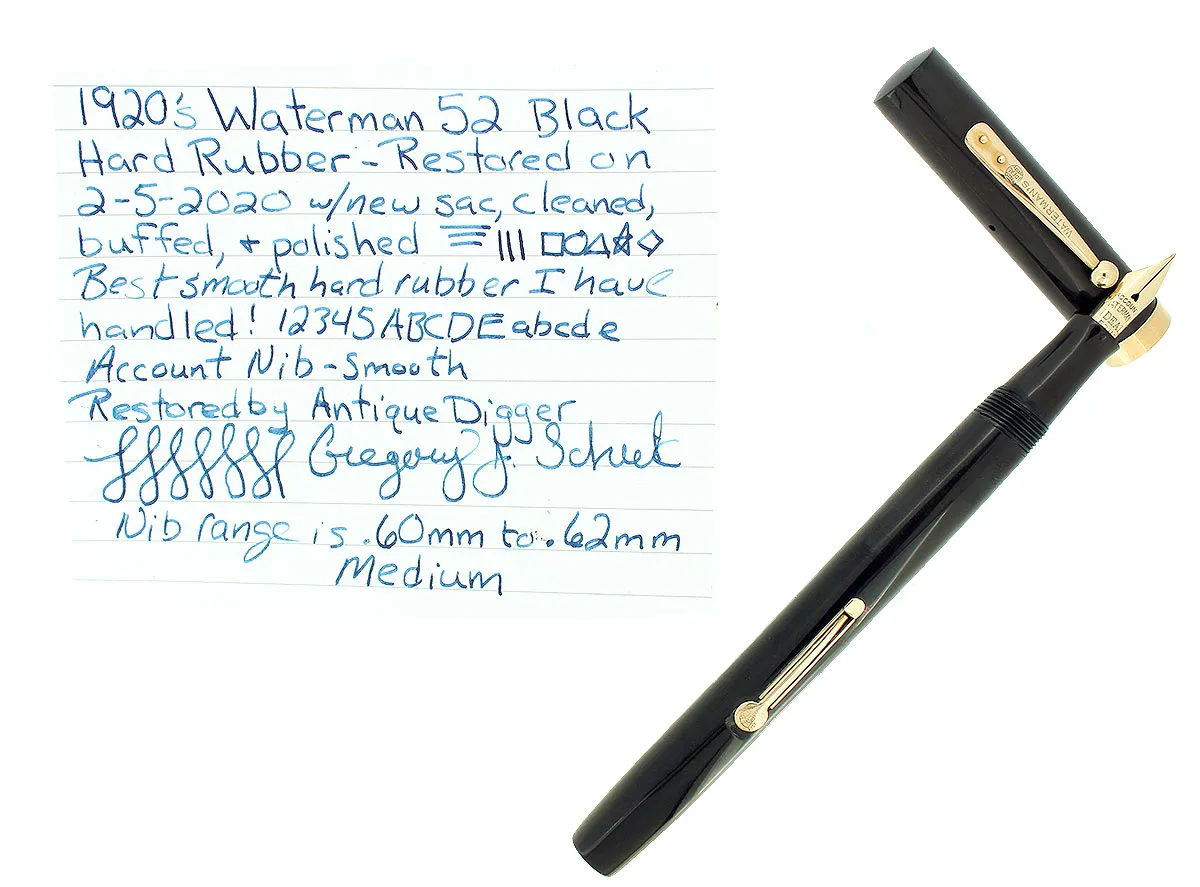 1920's Waterman 52 Black
Hard Rubber - Restored on
2-5-2020 w/new sac, cleaned,
buffed, + polished
Best smooth hard rubber I have
handled! 12345ABCDE abcde
Account Nib - Smooth
Restored by Antique Digger
Gregory J.
Nib range is .60mm to .62mm
Medium
WATERMAN'S
IDEAL